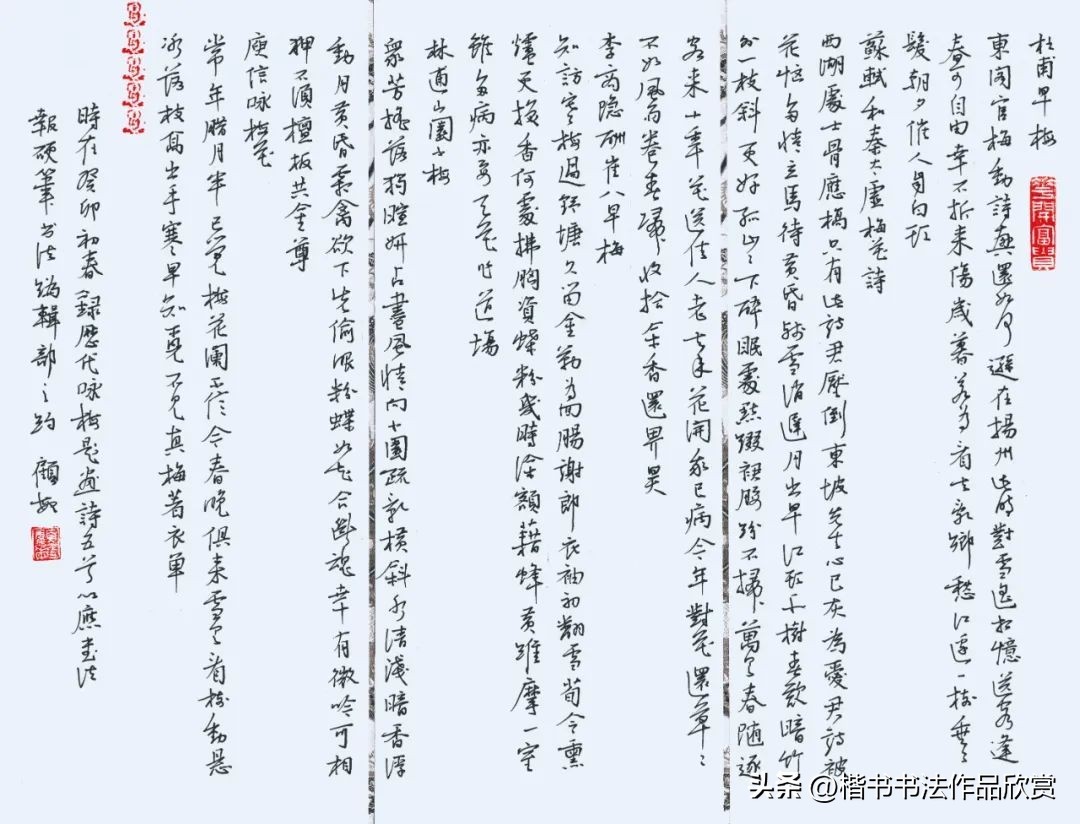 杜甫早梅
東閣官梅動詩興還如何遜在揚州此時對雪遥相憶送客逢
春可自由幸不折來傷歲暮若為看去亂鄉愁江邊一樹垂垂
髮朝夕催人自白頭
蘇軾和秦太虛梅花詩
西湖處士骨應槁只有此詩君壓倒東坡先生心已灰為愛君詩被
花惱多情立馬待黃昏殘雪消遲月出早江頭千樹春欲暗竹
外一枝斜更好孤山山下醉眠處點綴裙腰紛不掃萬里春隨逐
客來十年花送佳人老去年花開我已病今年對花還草草
不如風雨卷春歸收拾余香還畀昊
李商隐酬崔八早梅
知訪寒梅過野塘久留金勒為回腸謝郎衣袖初翻雪荀令熏
爐更換香何處拂胸資蝶粉幾時塗額藉蜂黃維摩一室
雖多病亦要天花作道場
林逋山園小梅
衆芳搖落獨暄妍占盡風情向小園疏影橫斜水清淺暗香浮
動月黃昏霜禽欲下先偷眼粉蝶如知合斷魂幸有微吟可相
狎不須檀板共金尊
庾信咏梅花
常年臘月半已覺梅花闌不信今春晚俱來雪里看樹動懸
冰落枝高出手寒早知覓不見真梅著衣單
時在癸卯初春錄歷代咏梅題畫詩五首以應書法
報硬筆書法編輯部之約 顧
头条 @楷书书法作品欣赏